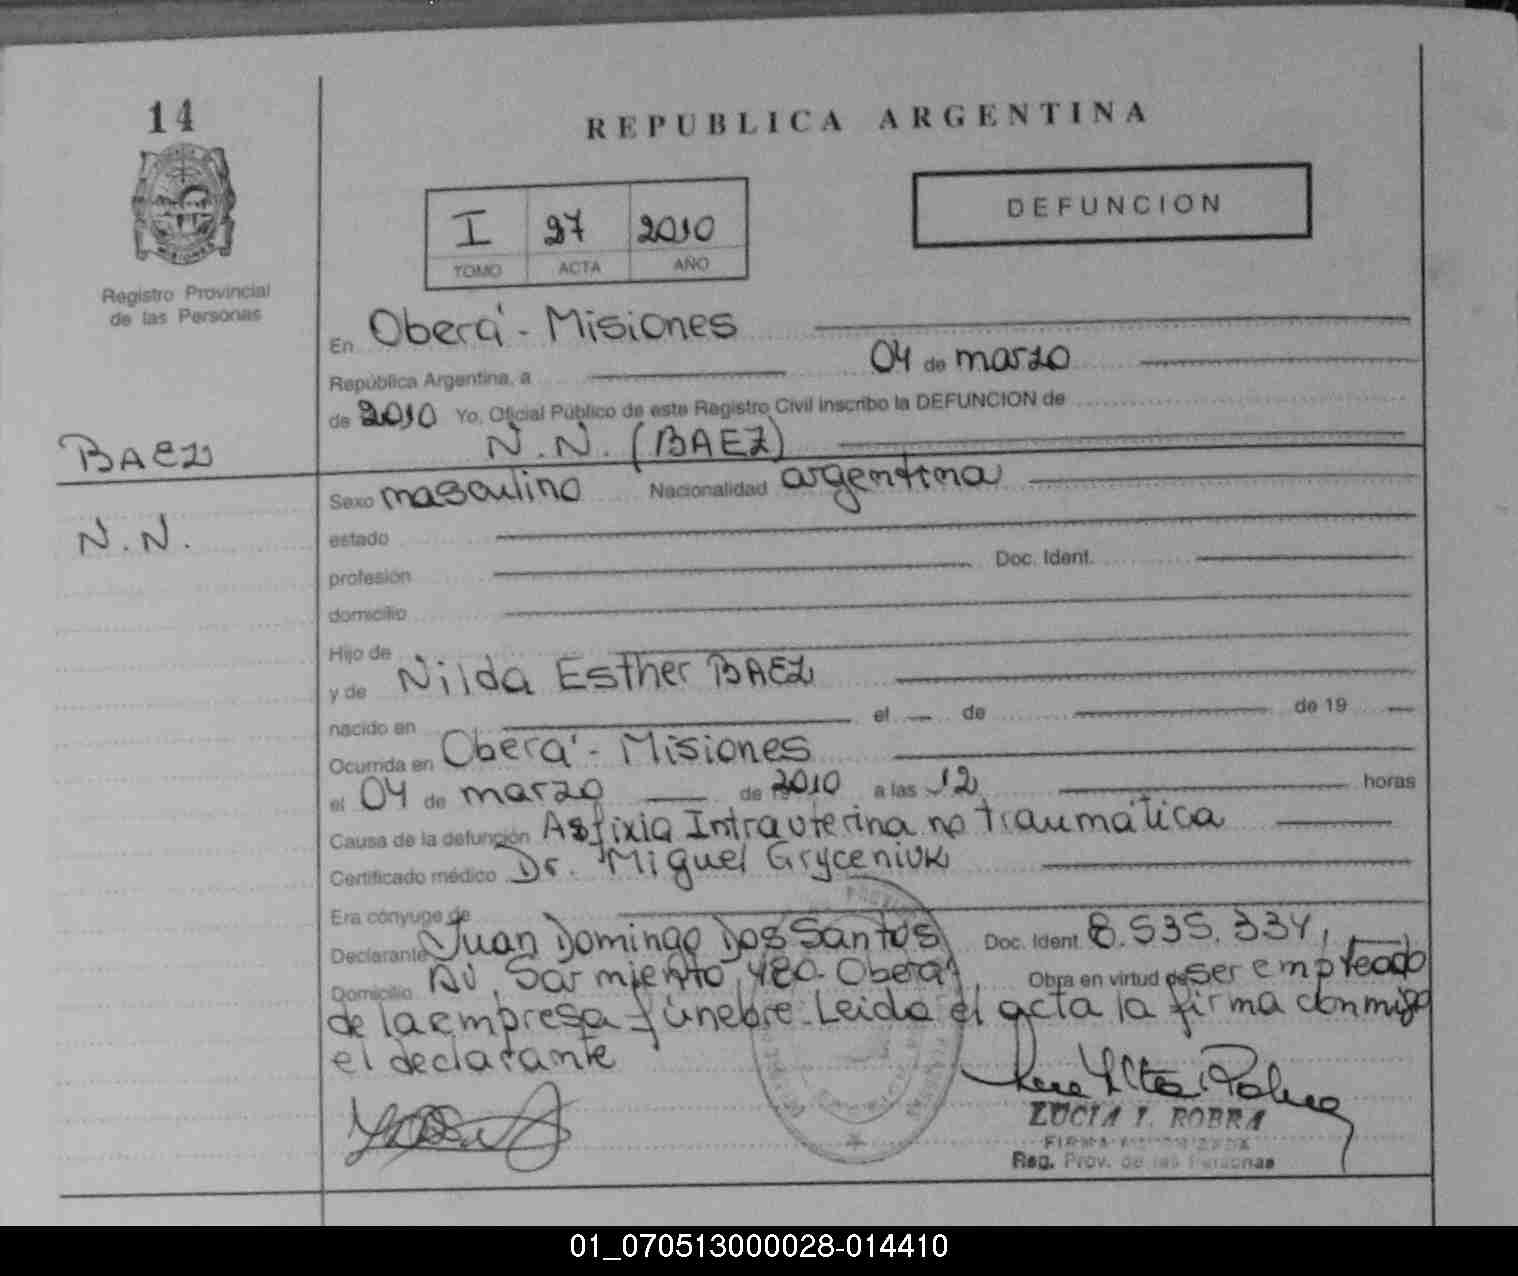 14
REPUBLICA ARGENTINA
DEFUNCION
I 27 2010
TOMO ACTA AÑO
Registro Provincial
de las Personas
En Oberá - Misiones
República Argentina, a 04 de marzo
de 2010 Yo, Oficial Público de este Registro Civil inscribo la DEFUNCION de
N.N. (BAEZ)
BAEZ
N.N.
Sexo masculino Nacionalidad argentina
estado
profesión Doc. Ident.
domicilio
Hijo de
y de Nilda Esther BAEZ
nacido en el de de 19
Ocurrida en Oberá - Misiones
el 04 de marzo de 2010 a las 12 horas
Causa de la defunción Asfixia Intrauterina no traumática
Certificado médico Dr. Miguel Gryceniuk
Era cónyuge de
Declarante Juan Domingo Dos Santos Doc. Ident. 8.535.334,
Domicilio Av. Sarmiento 480 - Oberá, Obra en virtud de ser empleado
de la empresa fúnebre. Leida el acta la firma conmigo
el declarante
LUCIA I. ROBRA
FIRMA AUTORIZADA
Reg. Prov. de las Personas
01_070513000028-014410